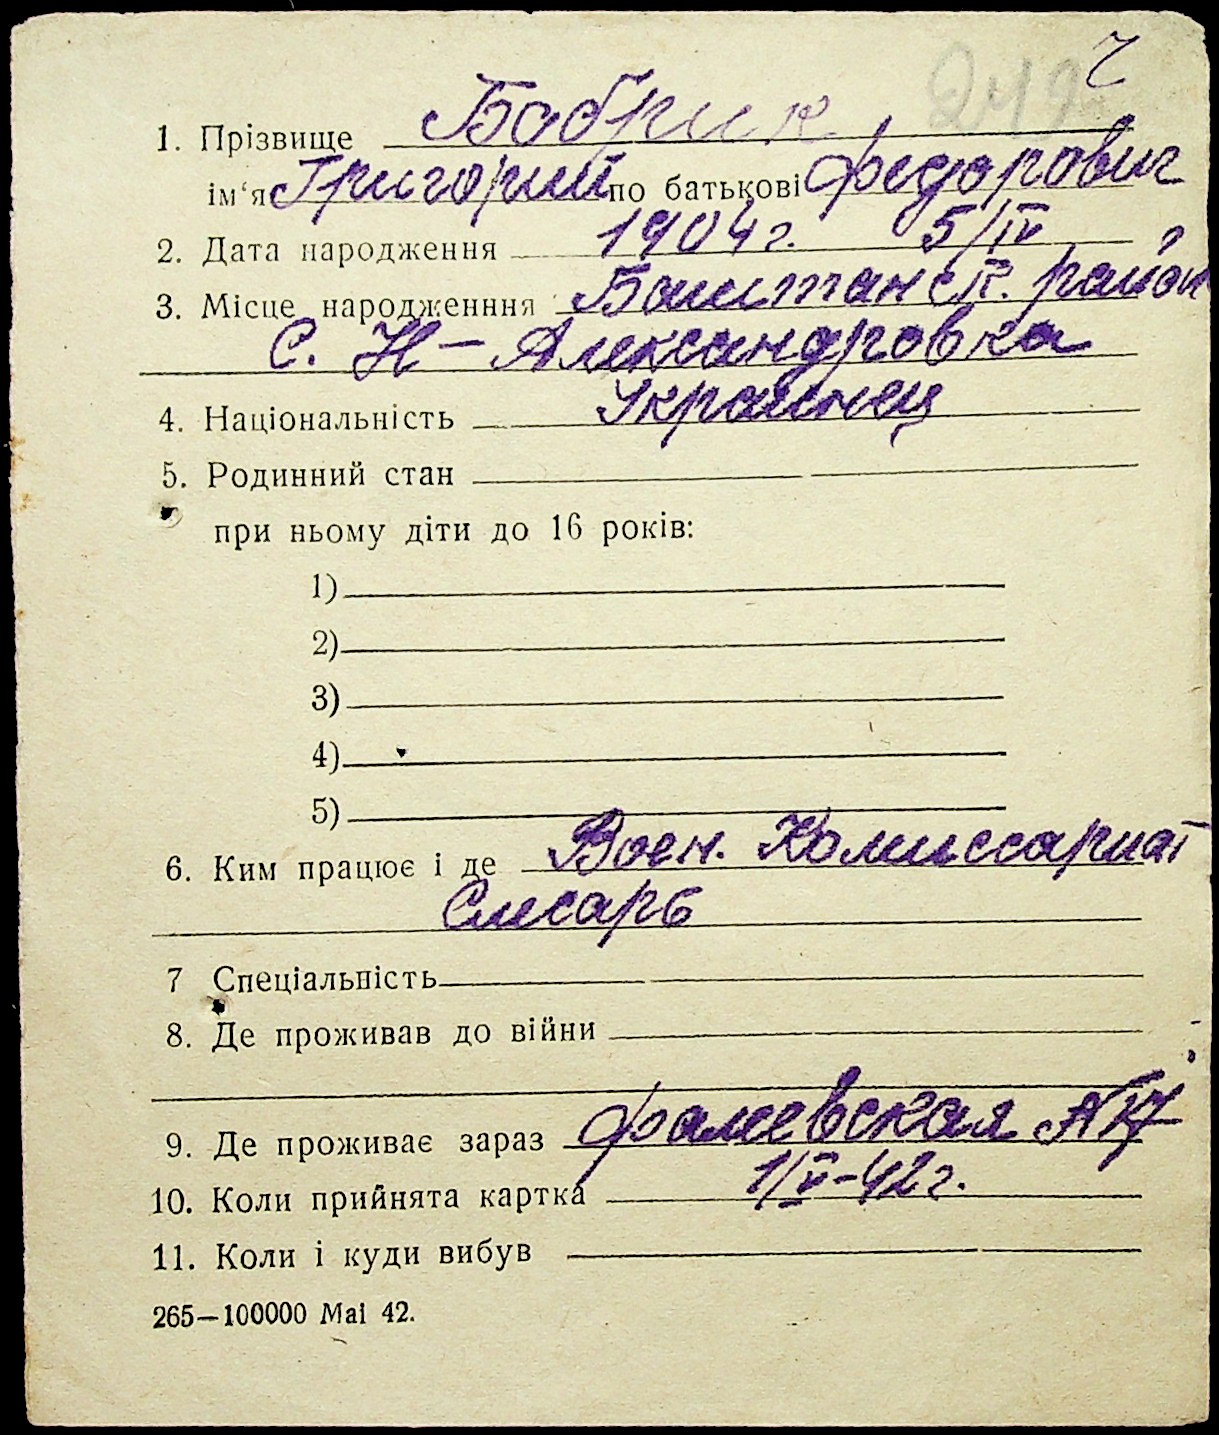 ч
249
1. Прізвище Бобрик
ім‘я Григорий по батькові Федорович
2. Дата народження 1904г. 5/IV
3. Місце народженння Баштанск. район
с. Н-Александровка
4. Національність Украинец
5. Родинний стан
при ньому діти до 16 років:
1)
2)
3)
4)
5)
6. Ким працює і де Воен. Комиссариат
Слесарь
7 Спеціальність
8. Де проживав до війни
9. Де проживає зараз Фалеевская
10. Коли прийнята картка 1/V-42г.
11. Коли і куди вибув
265—100000 Mai 42.